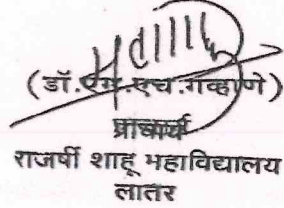 (डॉ.एम.एच.गव्हाणे)
प्राचार्य
राजर्षी शाहू महाविद्यालय
लातूर